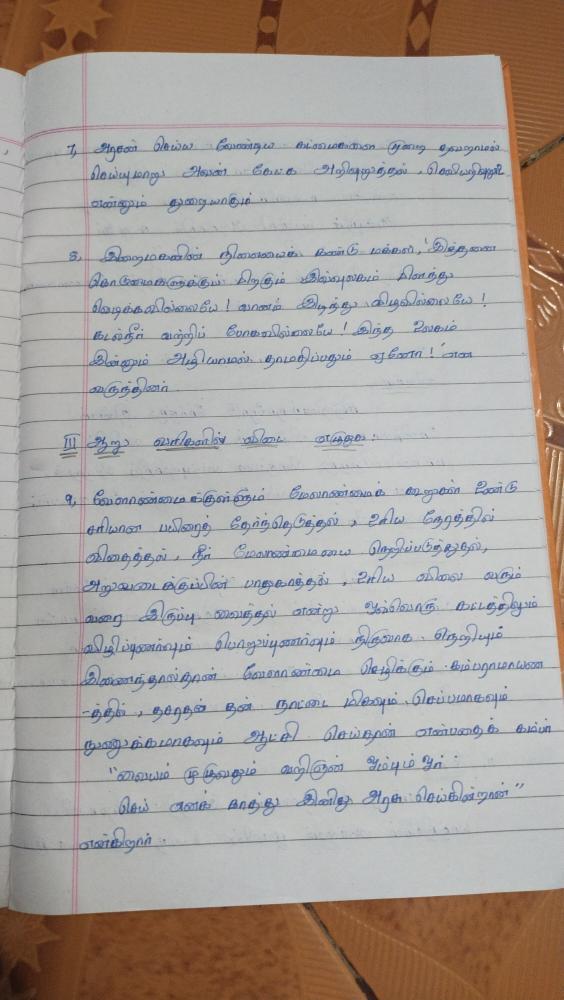 7, அரசன் செய்ய வேண்டிய கடமைகளை முறை தவறாமல்
செய்யுமாறு அவன் கேட்க அறிவுறுத்தல், செவியறிவுறூஉ
என்னும் துறையாகும்.
8, இறைமகனின் நிலையைக் கண்டு மக்கள், 'இத்தனை
கொடுமைகளுக்குப் பிறகும் இவ்வுலகம் பிளந்து
வெடிக்கவில்லையே! வானம் இடிந்து விழவில்லையே!
கடல்நீர் வற்றிப் போகவில்லையே! இந்த உலகம்
இன்னும் அழியாமல் தாமதிப்பதும் ஏனோ!' என
வருந்தினர்
III ஆறு வரிகளில் விடை எழுதுக:
9, வேளாண்மைக்குள்ளும் மேலாண்மைக் கூறுகள் உண்டு
சரியான பயிரைத் தேர்ந்தெடுத்தல், உரிய நேரத்தில்
விதைத்தல், நீர் மேலாண்மையை நெறிப்படுத்துதல்,
அறுவடைக்குப்பின் பாதுகாத்தல், உரிய விலை வரும்
வரை இருப்பு வைத்தல் என்று ஒவ்வொரு கட்டத்திலும்
விழிப்புணர்வும் பொறுப்புணர்வும் நிருவாக நெறியும்
இணைந்தால்தான் வேளாண்மை செழிக்கும். கம்பராமாயண
-த்தில், தசரதன் தன் நாட்டை மிகவும் செப்பமாகவும்
நுணுக்கமாகவும் ஆட்சி செய்தான் என்பதைக் கம்பர்
"வையம் முழுவதும் வறிஞன் ஓம்பும் ஓர்
செய் எனக் காத்து இனிது அரசு செய்கின்றான்"
என்கிறார்.